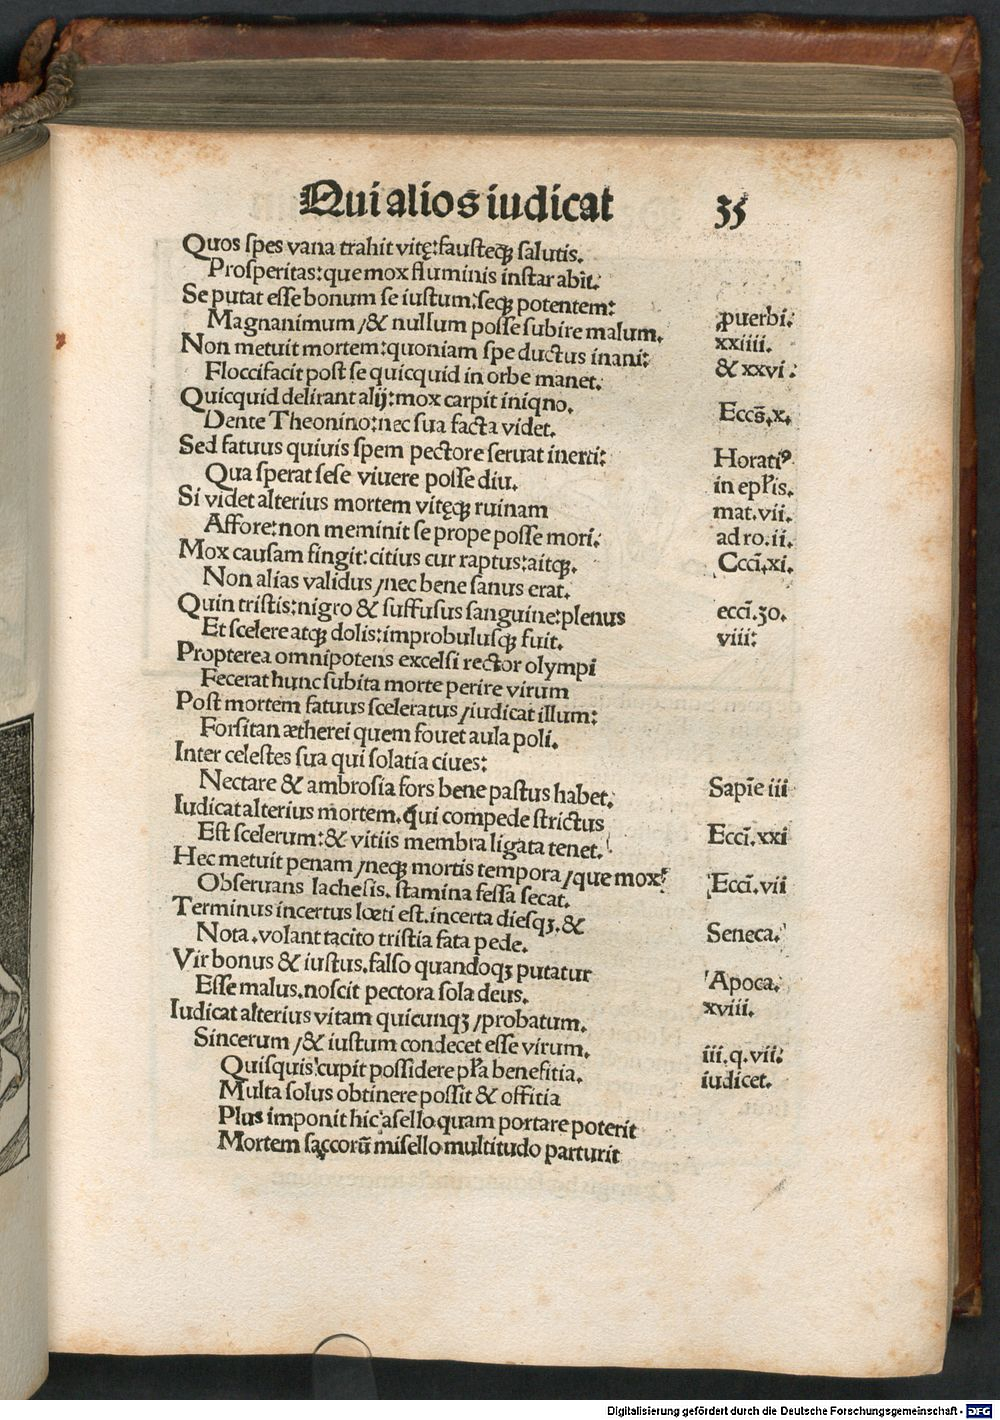 Qui alios iudicat 35
Quos spes vana trahit vitę:fausteqȝ salutis.
Prosperitas:que mox fluminis instar abit:
Se putat esse bonum se iustum:seqȝ potentem:
Magnanimum /& nullum posse subire malum.
Non metuit mortem:quoniam spe ductus inani:
Floccifacit post se quicquid in orbe manet:
Quicquid delirant alij:mox carpit iniqno.
Dente Theonino:nec sua facta videt.
Sed fatuus quiuis spem pectore seruat inerti:
Qua sperat sese viuere posse diu.
Si videt alterius mortem vitęqȝ ruinam
Affore:non meminit se prope posse mori:
Mox causam fingit:citius cur raptus:aitqȝ.
Non alias validus /nec bene sanus erat.
Quin tristis:nigro & suffusus sanguine:plenus
Et scelere atqȝ dolis:improbulusqȝ fuit.
Propterea omnipotens excelsi rector olympi
Fecerat hunc subita morte perire virum
Post mortem fatuus sceleratus /iudicat illum:
Forsitan ætherei quem fouet aula poli.
Inter celestes sua qui solatia ciues:
Nectare & ambrosia fors bene pastus habet.
Iudicat alterius mortem.qui compede strictus
Est scelerum:& vitiis membra ligata tenet.
Hec metuit penam /neqȝ mortis tempora /que mox
Obseruans lachesis. stamina fessa secat.
Terminus incertus lœti est.incerta diesqȝ.&
Nota.volant tacito tristia fata pede.
Vir bonus & iustus.falso quandoqȝ putatur
Esse malus.noscit pectora sola deus.
Iudicat alterius vitam quicunqȝ /probatum.
Sincerum /& iustum condecet esse virum.
Quisquis cupit possidere pl̃a benefitia.
Multa solus obtinere possit & offitia
Plus imponit hic asello quam portare poterit
Mortem saccorũ misello multitudo parturit
ꝓuerbi.
xxiiii.
& xxvi:
Eccs̃.x.
Horatiꝰ
in epl̃is.
mat.vii.
ad ro.ii.
Ccci̅.xi.
ecci̅.30.
viii:
Sapiẽ iii
Ecci̅.xxi
Ecci̅.vii
Seneca.
Apoca.
xviii.
iii.q.vii.
iudicet.
Digitalisierung gefördert durch die Deutsche Forschungsgemeinschaft - DFG